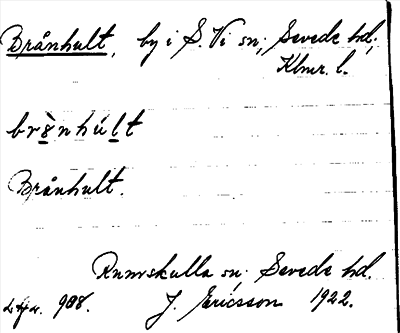 Brånhult, by i S. Vi sn, Sevede hd,
Klmr. l.
brånhúlt
Brånhult.
Rumskulla sn, Sevede hd.
908. J. Ericsson 1922.